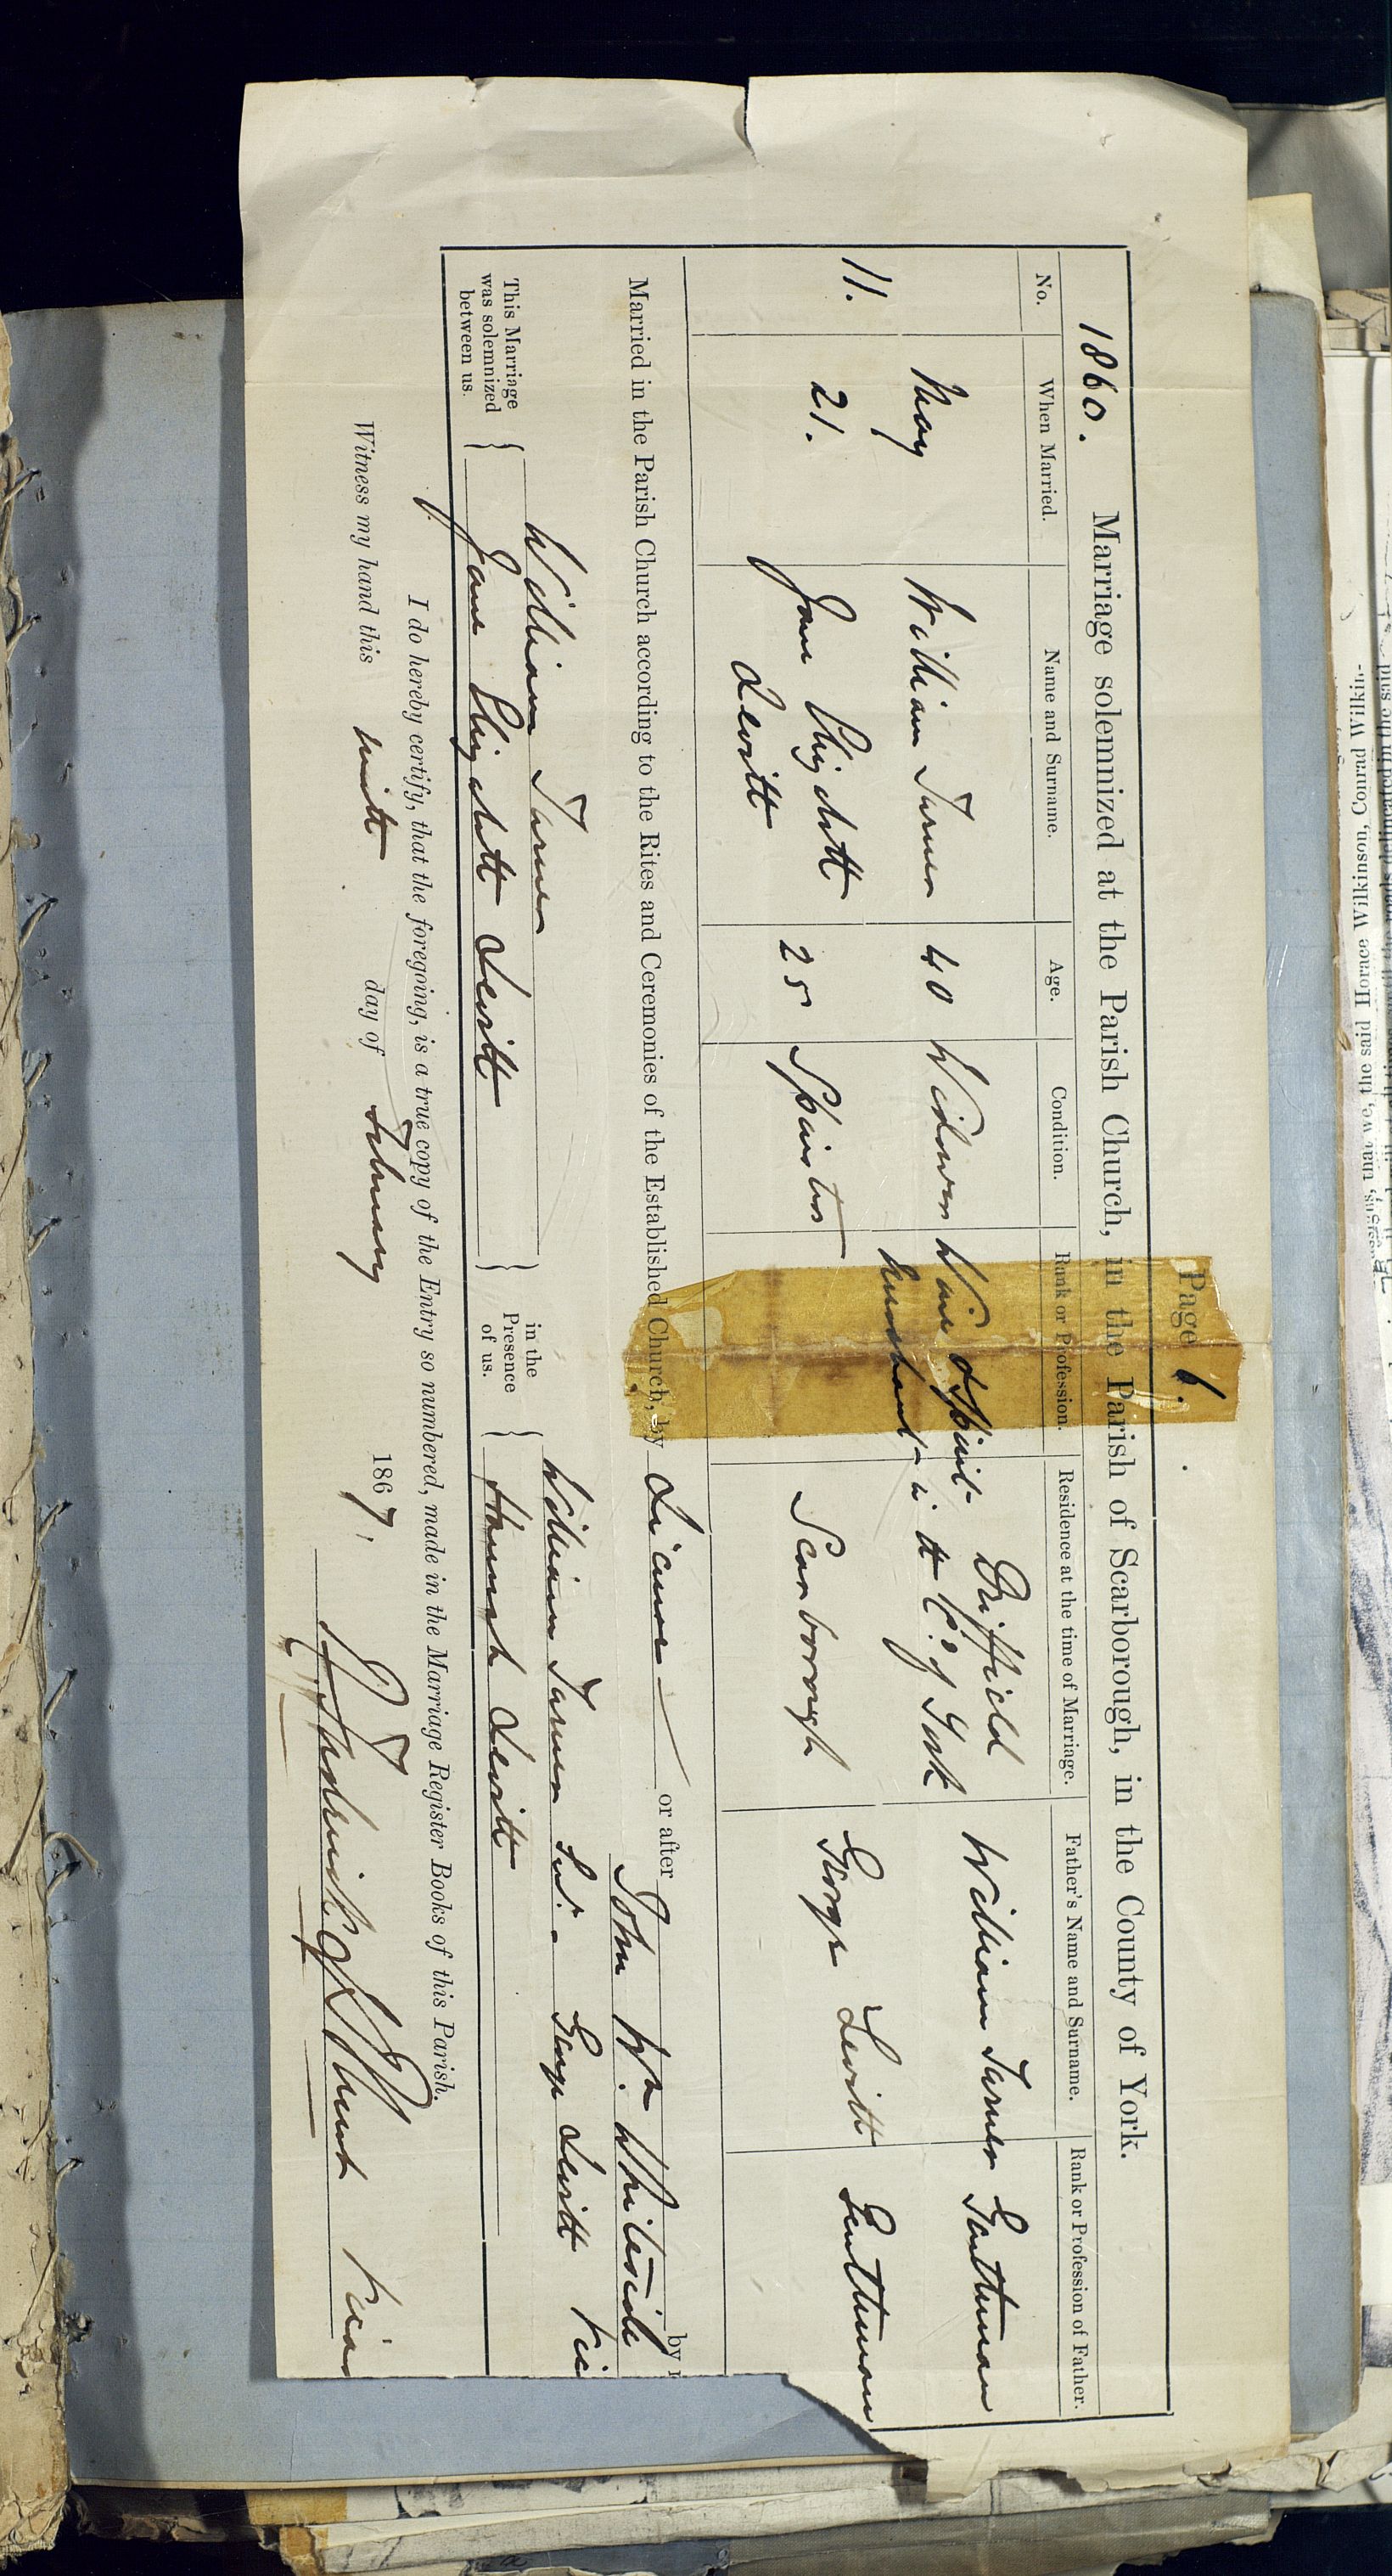 Page 6.
1860. Marriage solemnized at the Parish Church, in the Parish of Scarborough, in the County of York.
No. When Married. Name and Surname. Age. Condition. Rank or Profession. Residence at the time of Marriage. Father's Name and Surname. Rank or Profession of Father.
11. May 21. William Turner 40 Widower Wine & Spirit Merchant Driffield in the Co. of York William Turner Gentleman
Jane Levitt 25 Spinster Scarborough George Levitt Gentleman
Married in the Parish Church according to the Rites and Ceremonies of the Established Church, by Licence or after by
John Wm. Whiteside Vic
This Marriage was solemnized between us.
William Turner
Jane Levitt
in the Presence of us.
William Turner Senr. George Levitt
Hannah Levitt
I do hereby certify, that the foregoing, is a true copy of the Entry so numbered, made in the Marriage Register Books of this Parish.
Witness my hand this day of February 1867.
Vicar
the said Horace Wilkinson, Conrad Wilkin-